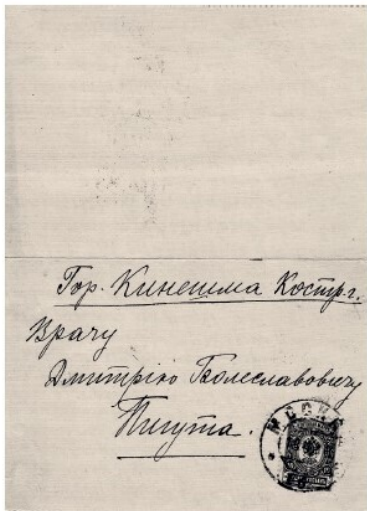 Гор. Кинешма Костр. г.
Врачу
Дмитрію Болеславовичу
Пигута.
МОСКВА